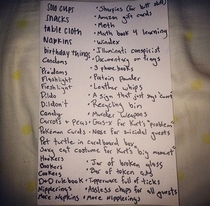 Solo cups
Snacks
table cloth
Napkins
birthday things
Condoms
Prodoms
Flashlight
Fleshlight
Dildo
Dildon't
Candy
Carrots + Peas
Pokémon cards
Pet turtle in cardboard box
Gray cat costume for Kurt's "big moment"
Hookers
Cookers
D+D rule book
Nipplerings
More napkins
• Sharpies (for butt stuff)
• Amazon gift cards
• Meth
• Math book 4 learning
• Windex
• Illuminati conspiracist
• Documentary on frogs
• 3 phone books
• Protein Powder
• Leather whips
• A sign that just says
• Recycling bin
• Murder Weapons
• Gas-X for Kurt's "problem"
• Noose for suicidal guests
• Jar of broken glass
• Bar of broken
• Tupperware full of ticks
• Assless chaps for all guests
• More Nipplerings